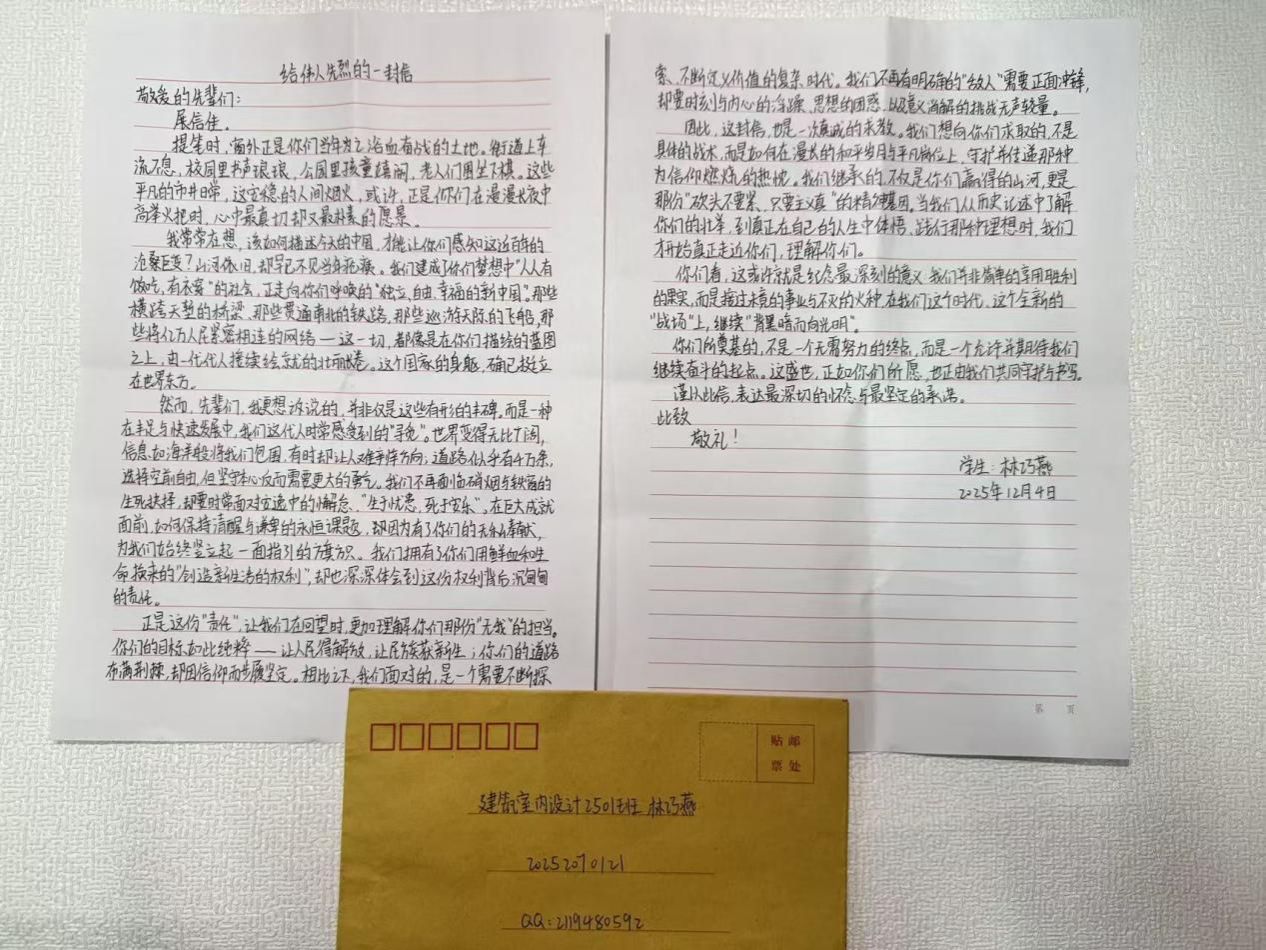 给伟人先烈的一封信
敬爱的先辈们：
展信佳。
提笔时，窗外正是你们当年为之浴血奋战的土地。街道上车
流不息，校园里书声琅琅，公园里孩童嬉闹，老人们围坐下棋。这些
平凡的市井日常，这安稳的人间烟火，或许，正是你们在漫漫长夜中
高举火把时，心中最真切却又最朴素的愿景。
我常常在想，该如何描述今天的中国，才能让你们感知这近百年的
沧桑巨变？山河依旧，却早已不见当年疮痍。我们建成了你们梦想中“人人有
饭吃，有衣穿”的社会，正走向你们呼唤的“独立、自由、幸福的新中国”。那些
横跨天堑的桥梁、那些贯通南北的铁路，那些巡游天际的飞船，那
些将亿万人民紧密相连的网络——这一切，都像是在你们描绘的蓝图
之上，由一代代人接续绘就的壮丽画卷。这个国家的身躯，确已挺立
在世界东方。
然而，先辈们，我更想诉说的，并非仅是这些有形的丰碑。而是一种
在丰足与快速发展中，我们这代人时常感受到的“寻觅”。世界变得无比广阔，
信息如海洋般将我们包围，有时却让人难择方向；道路似乎有千万条，
选择空前自由，但坚守本心反而需要更大的勇气。我们不再面临硝烟与铁窗的
生死抉择，却要时常面对安逸中的懈怠，“生于忧患，死于安乐”。在巨大成就
面前，如何保持清醒与谦卑的永恒课题，却因为有了你们的无私奉献，
为我们始终竖立起一面指引的旗帜。我们拥有了你们用鲜血和生
命换来的“创造新生活的权利”，却也深深体会到这份权利背后沉甸甸
的责任。
正是这份“责任”，让我们在回望时，更加理解你们那份“无我”的担当。
你们的目标如此纯粹——让人民得解放，让民族获新生；你们的道路
布满荆棘，却因信仰而步履坚定。相比之下，我们面对的，是一个需要不断探
索、不断定义价值的复杂时代。我们不再有明确的“敌人”需要正面冲锋，
却要时刻与内心的浮躁、思想的困惑、以及意义消解的挑战无声较量。
因此，这封信，也是一次真诚的求教。我们想向你们求取的，不是
具体的战术，而是如何在漫长的和平岁月与平凡岗位上，守护并传递那种
为信仰燃烧的热忱。我们继承的，不仅是你们赢得的山河，更是
那份“砍头不要紧，只要主义真”的精神基因。当我们从历史论述中了解
你们的壮举，到真正在自己的人生中体悟、践行那种理想时，我们
才开始真正走近你们，理解你们。
你们看，这或许就是纪念最深刻的意义 我们并非简单的享用胜利
的果实，而是接过未竟的事业与不灭的火种，在我们这个时代，这个全新的
“战场”上，继续“背黑暗而向光明”。
你们所奠基的，不是一个无需努力的终点，而是一个允许并期待我们
继续奋斗的起点。这盛世，正如你们所愿，也正由我们共同守护与书写。
谨以此信，表达最深切的怀念与最坚定的承诺。
此致
敬礼！
学生：林巧燕
2025年12月4日
第 页
贴 邮
票 处
建筑室内设计2501班 林巧燕
20252070121
QQ：2119480592